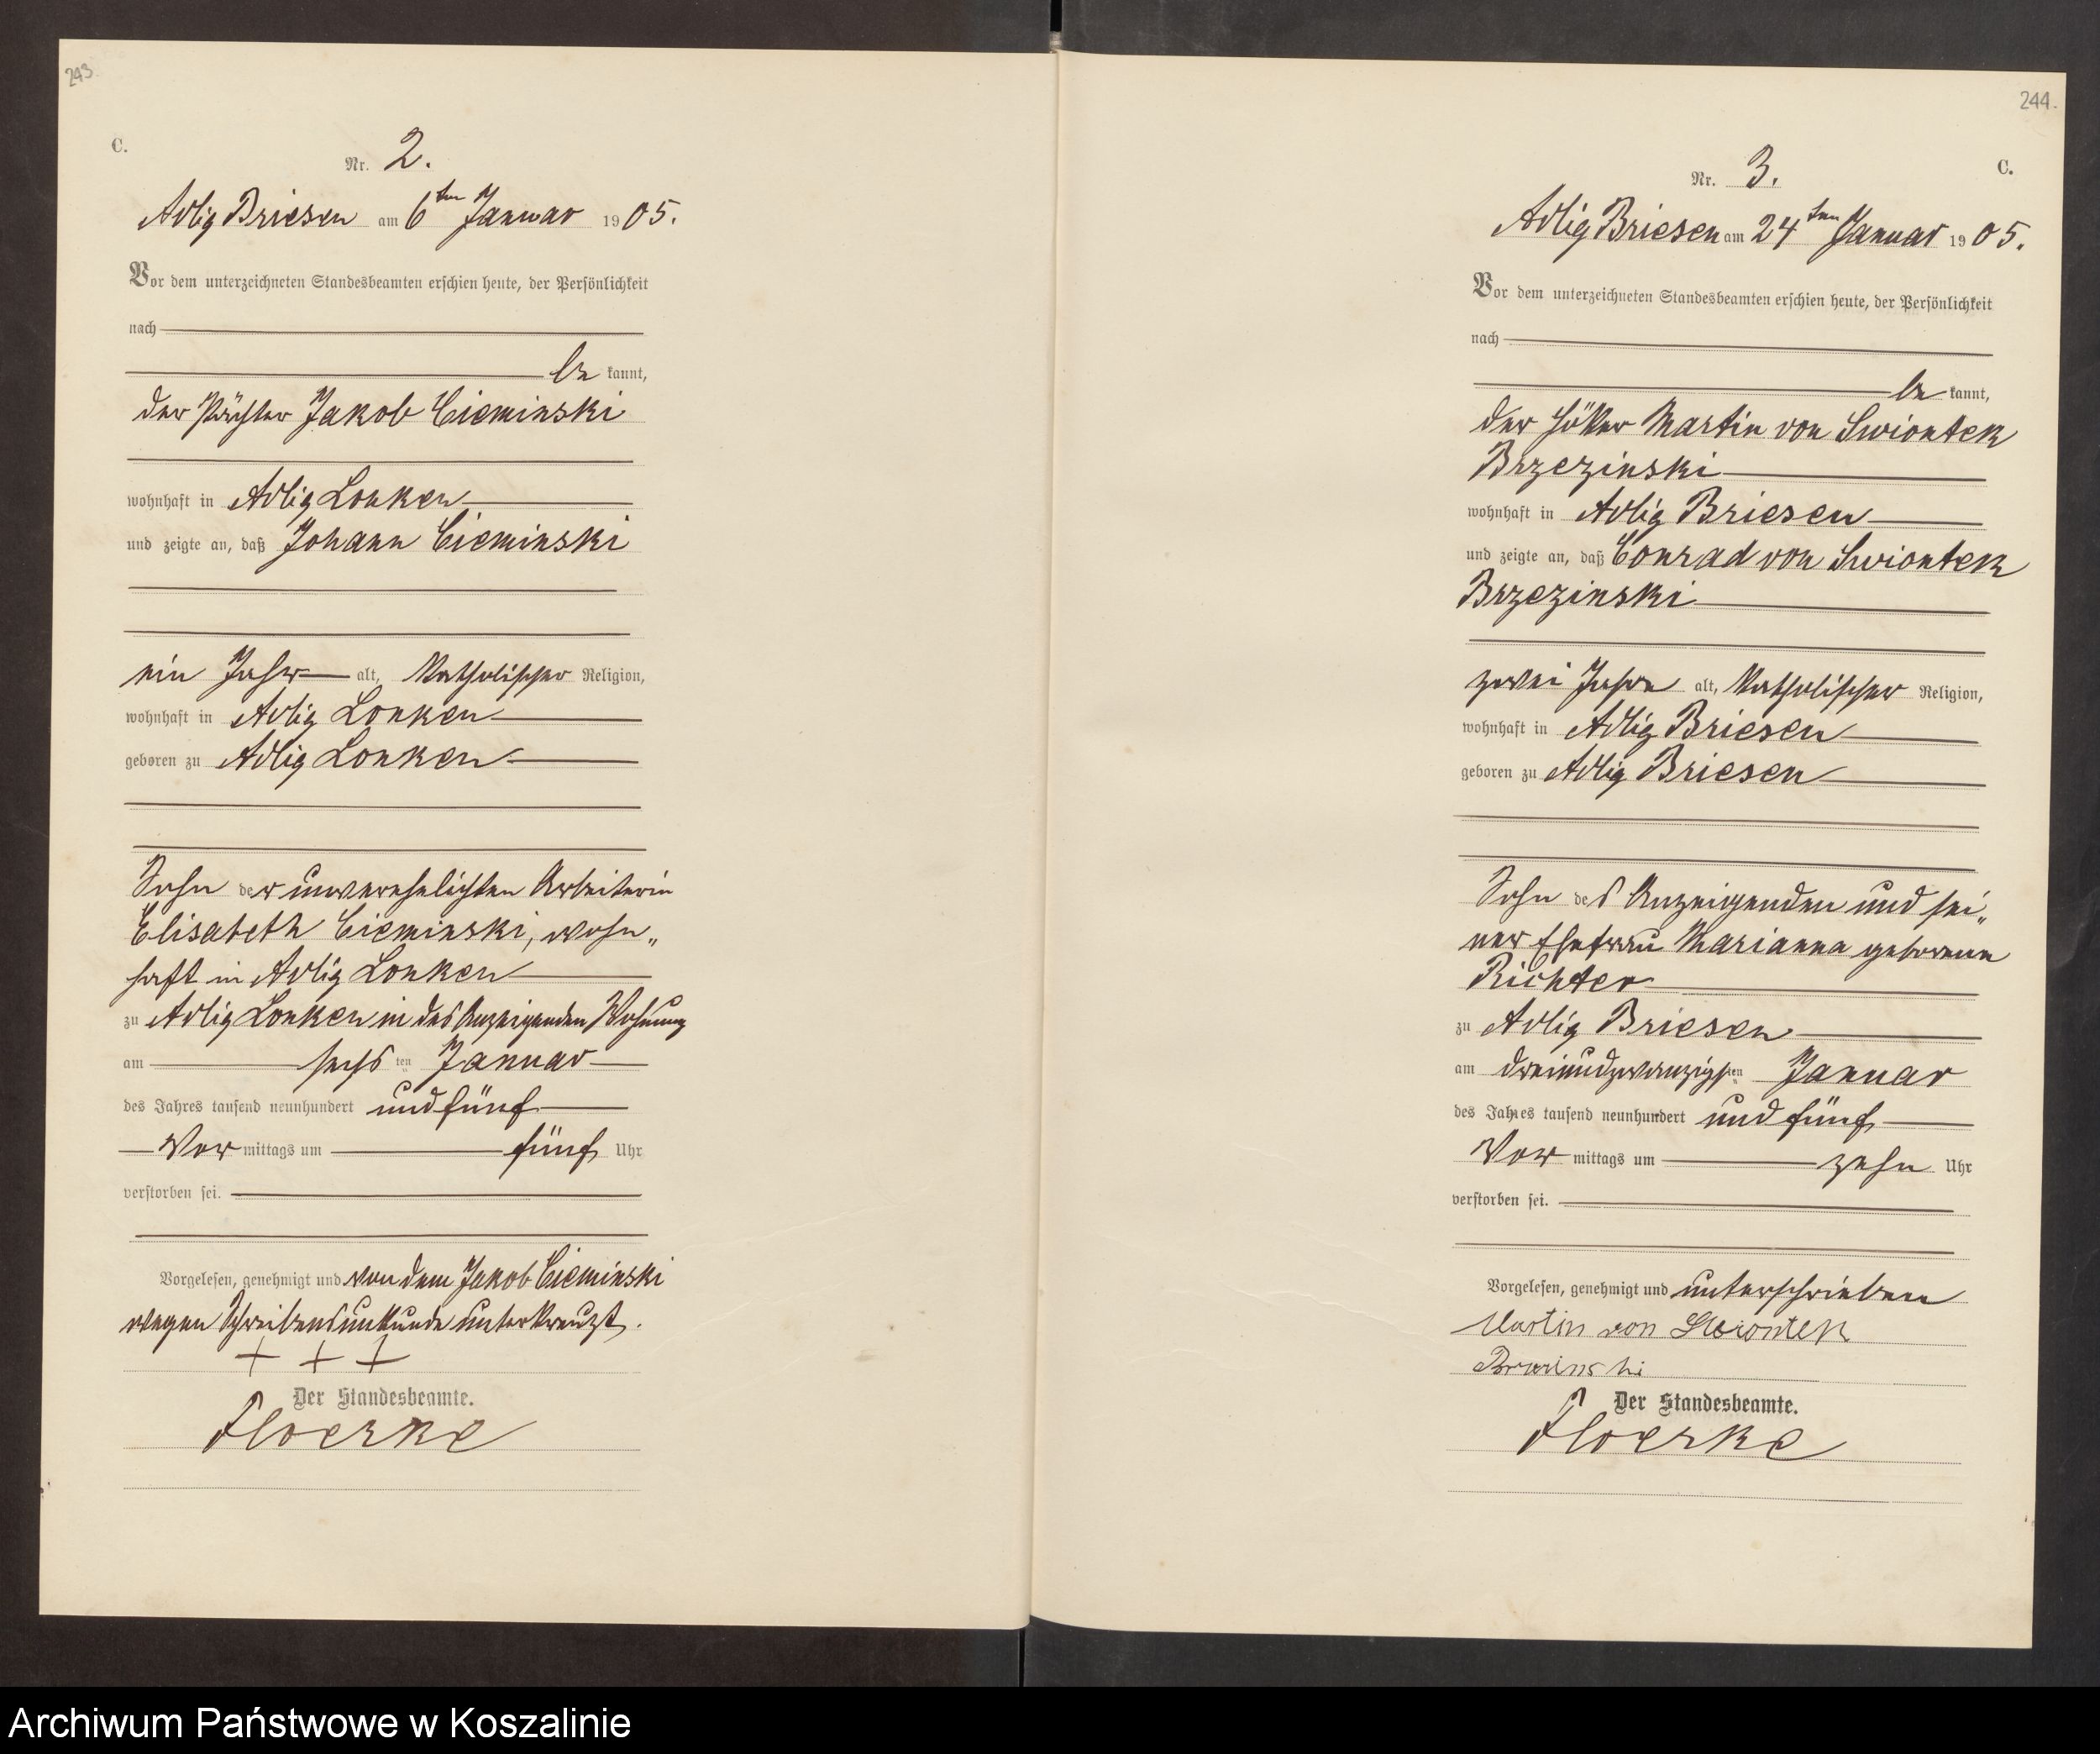 243.
C.
Nr. 2.
Adlig Briesen am 6ten Januar 1905.
Vor dem unterzeichneten Standesbeamten erschien heute, der Persönlichkeit
nach
be kannt,
der Pächter Jakob Cieminski
wohnhaft in Adlig Lonken
und zeigte an, daß Johann Cieminski
ein Jahr alt, katholischer Religion,
wohnhaft in Adlig Lonken
geboren zu Adlig Lonken
Sohn der unverehelichten Arbeiterin
Elisabeth Cieminski, wohn„
haft in Adlig Lonken
zu Adlig Lonken in des Anzeigenden Wohnung
am sechs ten Januar
des Jahres tausend neunhundert und fünf
Vor mittags um fünf Uhr
verstorben sei.
Vorgelesen, genehmigt und von dem Jakob Cieminski
wegen Schreibensunkunde unterkreuzt.
+ + +
Der Standesbeamte.
Floerke
244.
C.
Nr. 3.
Adlig Briesen am 24ten Januar 1905.
Vor dem unterzeichneten Standesbeamten erschien heute, der Persönlichkeit
nach
be kannt,
der Höker Martin von Swiontek
Brzezinski
wohnhaft in Adlig Briesen
und zeigte an, daß Conrad von Swiontek
Brzezinski
zwei Jahre alt, katholischer Religion,
wohnhaft in Adlig Briesen
geboren zu Adlig Briesen
Sohn des Anzeigenden und sei„
ner Ehefrau Marianna geborene
Richter
zu Adlig Briesen
am dreiundzwanzigsten Januar
des Jahres tausend neunhundert und fünf
Vor mittags um zehn Uhr
verstorben sei.
Vorgelesen, genehmigt und unterschrieben
Martin von Swiontek
Der Standesbeamte.
Floerke
Archiwum Państwowe w Koszalinie